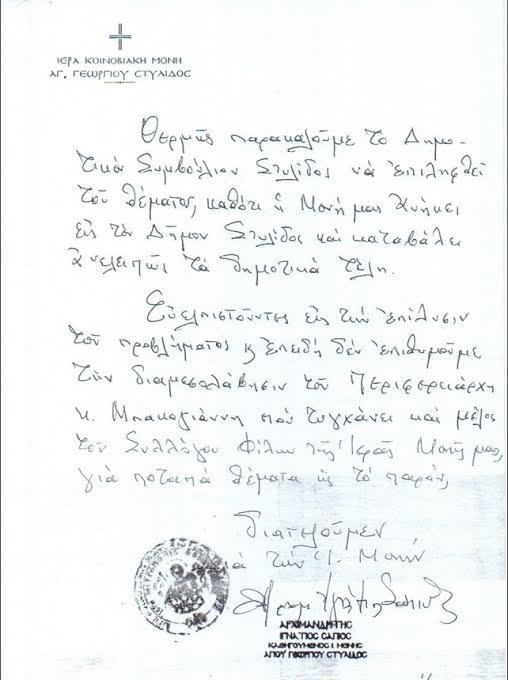 ΙΕΡΑ ΚΟΙΝΟΒΙΑΚΗ ΜΟΝΗ
ΑΓ. ΓΕΩΡΓΙΟΥ ΣΤΥΛΙΔΟΣ
Θερμῶς παρακαλοῦμε τὸ Δημο-
τικὸ Συμβούλιον Στυλίδος νὰ ἐπιληφθεῖ
τοῦ θέματος, καθότι ἡ Μονή μας ἀνήκει
εἰς τὸν Δῆμον Στυλίδος καὶ καταβάλει
ἀνελειπῶς τὰ δημοτικὰ τέλη.
Εὐελπιστοῦντες εἰς τὴν ἐπίλυσιν
τοῦ προβλήματος κ ἐπειδὴ δὲν ἐπιθυμοῦμε
τὴν διαμεσολάβησιν τοῦ Περιφερειάρχη
κ. Μπακογιάννη ποὺ τυγχάνει καὶ μέλος
τοῦ Συλλόγου Φίλων τῆς Ἱερᾶς Μονῆς μας,
γιὰ ποταπὰ θέματα ὡς τὸ παρόν,
διατελοῦμεν
τὴν Ἱ. Μονήν
ΑΡΧΙΜΑΝΔΡΙΤΗΣ
ΙΓΝΑΤΙΟΣ ΣΑΠΙΟΣ
ΚΑΘΗΓΟΥΜΕΝΟΣ Ι. ΜΟΝΗΣ
ΑΓΙΟΥ ΓΕΩΡΓΙΟΥ ΣΤΥΛΙΔΟΣ